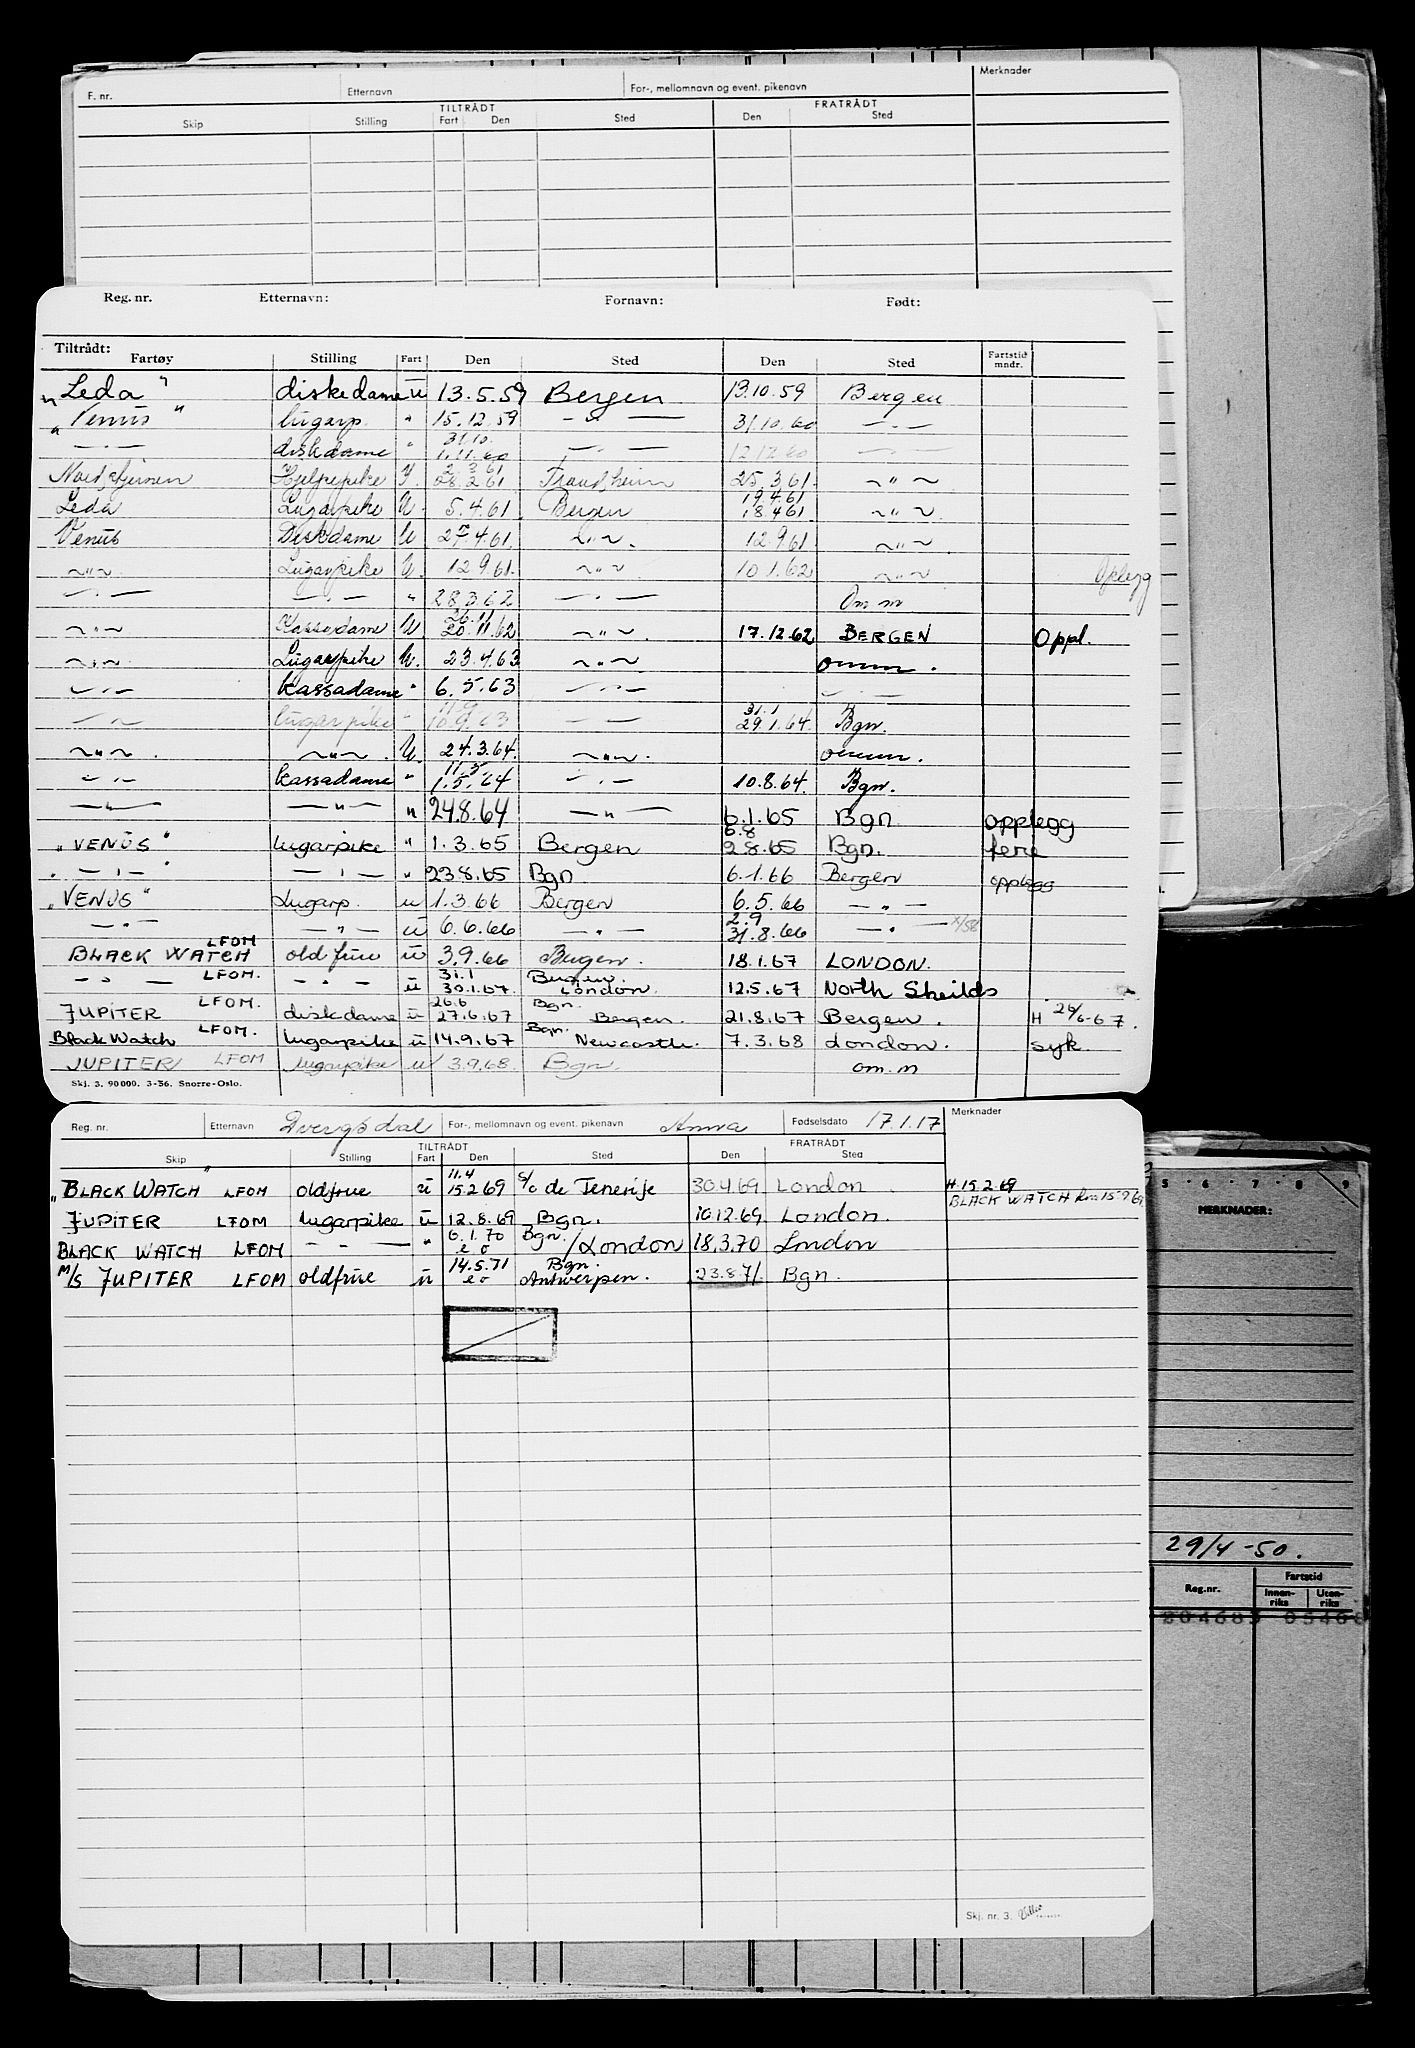 Merknader
F. nr. Etternavn For-, mellomnavn og event. pikenavn
TILTRÅDT FRATRÅDT
Skip Stilling Fart Den Sted Den Sted
Reg. nr. Etternavn: Fornavn: Født:
Tiltrådt:
Fartøy Stilling Fart Den Sted Den Sted Fartstid mndr.
"Leda" diskedame ü 13.5.59 Bergen 13.10.59 Bergen
"Venus" lugarp. " 15.12.59 — " — 31.10.60 — " —
— " — diskedame " 31.10. 1.11.60 — " — 12.12.60 — " —
Nordstjernen Hjelpepike I. 2.3.61 28.2.61 Trondheim 25.3.61. ~ " ~
Leda Lugarpike U. 5.4.61 Bergen 19.4.61 18.4.61 ~ " ~
Venus Diskdame U 27.4.61. ~ " ~. 12.9.61 ~ " ~
~ " ~ Lugarpike U. 12.9.61. ~ " ~ 10.1.62 ~ " ~ Oplegg
— " — — " — " 28.3.62 — " — Om m
~ " ~ Kassedame U. 26.11 20.11.62 ~ " ~. 17.12.62 BERGEN Oppl.
~ " ~ Lugarpike U. 23.4.63 ~ " ~ omm.
— " — kassadame " 6.5.63 — " — — " —
— " — lugarpike " 11.9 10.9.63 — " — 31.1 29.1.64. Bgn.
~ " ~. ~ " ~. U. 24.3.64. ~ " ~. omm.
— " — kassadame " 11.5 1.5.64 — " — 10.8.64. Bgn.
— " — — " — " 24.8.64 — " — 6.1.65 Bgn opplegg
"VENUS" lugarpike " 1.3.65 Bergen 6.8 2.8.65 Bgn. ferie
" — " — " — " — " 23.8.65 Bgn 6.1.66 Bergen opplegg
"VENUS" Lugarp. u 1.3.66 Bergen 6.5.66 — " —
— " — — " — ü 6.6.66 — " — 2.9 31.8.66 — " —
BLACK WATCH LFOM oldfrue ü 3.9.66 Bergen. 18.1.67 LONDON.
— " — LFOM. — " — ü 31.1 30.1.67. Bergen London. 12.5.67 North Sheilds
JUPITER LFOM. diskdame ü 26.6 27.6.67 Bgn. Bergen. 21.8.67 Bergen. H 26/6-67.
Black Watch LFOM. lugarpike ü 14.9.67 Bgn. Newcastle. 7.3.68 London. syk.
JUPITER LFOM lugarpike u 3.9.68. Bgn. om. m
Skj. 3. 90000. 3-56. Snorre-Oslo.
Reg. nr. Etternavn Dvergsdal For-, mellomnavn og event. pikenavn Anna Fødselsdato 17.1.17 Merknader
TILTRÅDT FRATRÅDT
Skip Stilling Fart Den Sted Den Sted
"BLACK WATCH" LFOM oldfrue ü 11.4 15.2.69 S/C de Tenerife 30.4.69 London H.15.2.69
BLACK WATCH
JUPITER LFOM lugarpike ü 12.8.69 Bgn. 10.12.69. London.
BLACK WATCH LFOM — " — " 6.1.70 eo Bgn. /London 18.3.70 London
M/S JUPITER LFOM oldfrue ü 14.5.71 eo Bgn. Antwerpen. 23.8.71. Bgn.
Skj. nr. 3.
5 · 6 · 7 · 8 · 9
MERKNADER:
29/4-50.
Reg.nr. Fartstid
Innenriks Utenriks